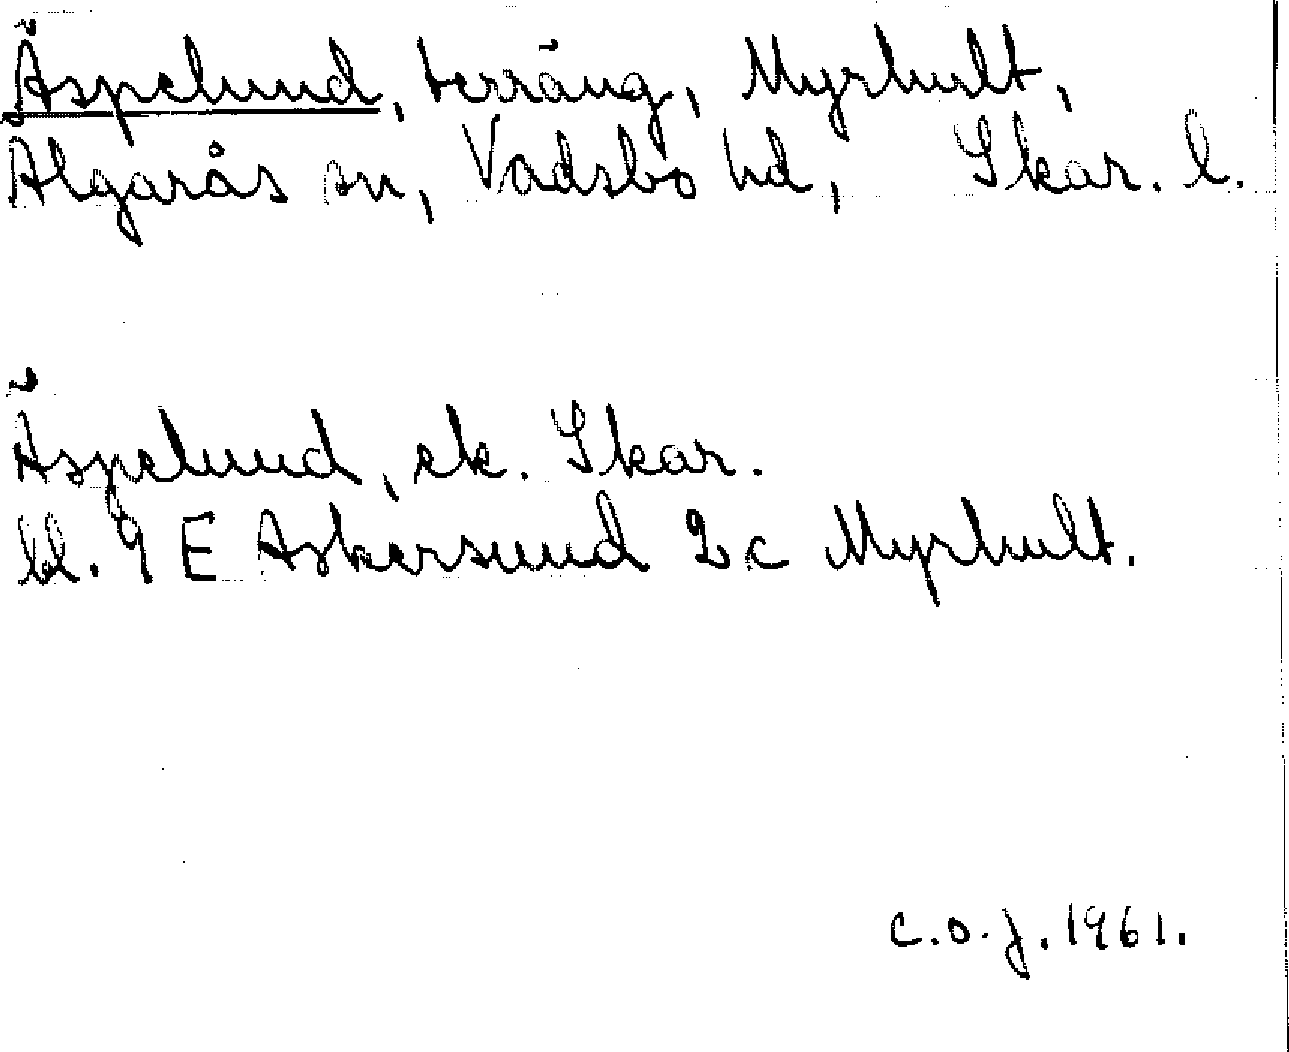 Äspelund, terräng, Myrhult,
Algarås sn, Vadsbo hd, Skar. l.
Äspelund, ek. Skar.
bl. 9 E Askersund 2 c Myrhult.
C.O.J. 1961.